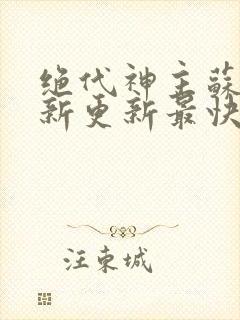 绝代神主蘇
新更新最快
汪東城